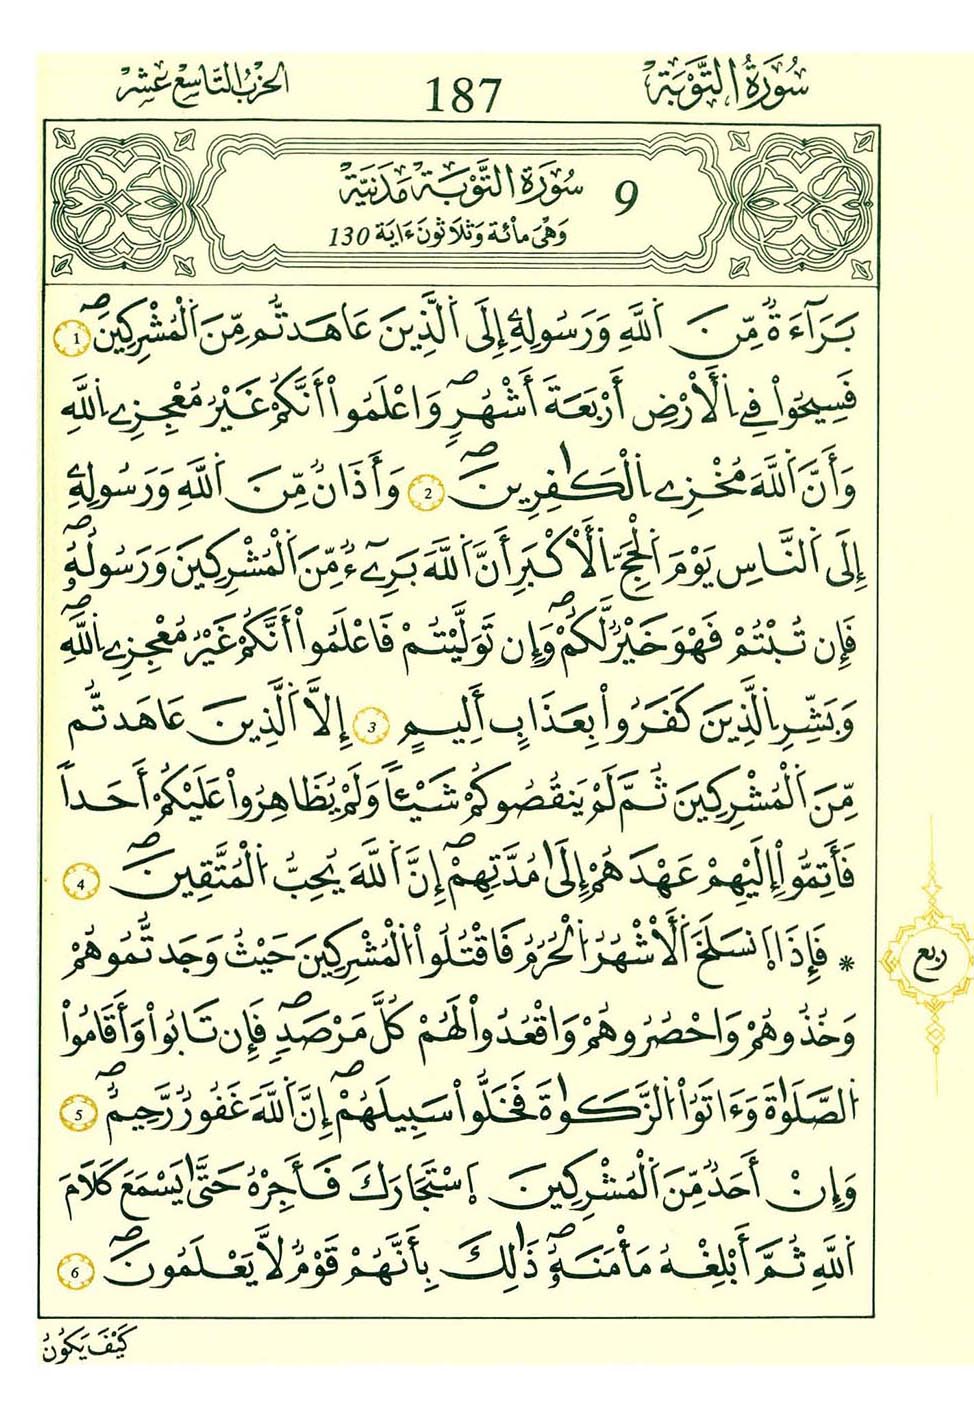 سُورَةُ التَّوْبَةِ 187 الحزب التاسع عشر
9 سُورَةُ التَّوْبَةِ مَدَنِيَّة
وَهْيَ مِائَة وَثَلَاثُونَ ءَايَة 130
بَرَآءَةٞ مِّنَ اَ۬للَّهِ وَرَسُولِهِۦٓ إِلَى اَ۬لذِينَ عَٰهَدتُّم مِّنَ اَ۬لْمُشْرِكِينَۖ 1
فَسِيحُواْ فِے اِ۬لَارْضِ أَرْبَعَةَ أَشْهُرٖۖ وَاعْلَمُواْ أَنَّكُمْ غَيْرُ مُعْجِزِے اِ۬للَّهِ
وَأَنَّ اَ۬للَّهَ مُخْزِے اِ۬لْكَٰفِرِينَۖ 2 وَأَذَانٞ مِّنَ اَ۬للَّهِ وَرَسُولِهِۦٓ
إِلَى اَ۬لنَّاسِ يَوْمَ اَ۬لْحَجِّ اِ۬لَاكْبَرِ أَنَّ اَ۬للَّهَ بَرِےٓءٞ مِّنَ اَ۬لْمُشْرِكِينَ وَرَسُولُهُۥۖ
فَإِن تُبْتُمْ فَهْوَ خَيْرٞ لَّكُمْۖ وَإِن تَوَلَّيْتُمْ فَاعْلَمُواْ أَنَّكُمْ غَيْرُ مُعْجِزِے اِ۬للَّهِۖ
وَبَشِّرِ اِ۬لذِينَ كَفَرُواْ بِعَذَابٍ أَلِيمٍ 3 إِلَّا اَ۬لذِينَ عَٰهَدتُّم
مِّنَ اَ۬لْمُشْرِكِينَ ثُمَّ لَمْ يَنقُصُوكُمْ شَيْـٔاٗ وَلَمْ يُظَٰهِرُواْ عَلَيْكُمْ أَحَداٗ
فَأَتِمُّواْ إِلَيْهِمْ عَهْدَهُمْ إِلَىٰ مُدَّتِهِمْۖ إِنَّ اَ۬للَّهَ يُحِبُّ اُ۬لْمُتَّقِينَۖ 4
* فَإِذَا اَ۪نسَلَخَ اَ۬لَاشْهُرُ اُ۬لْحُرُمُ فَاقْتُلُواْ اُ۬لْمُشْرِكِينَ حَيْثُ وَجَدتُّمُوهُمْ
ربع
وَخُذُوهُمْ وَاحْصُرُوهُمْ وَاقْعُدُواْ لَهُمْ كُلَّ مَرْصَدٖۖ فَإِن تَابُواْ وَأَقَامُواْ
اُ۬لصَّلَوٰةَ وَءَاتَوُاْ اُ۬لزَّكَوٰةَ فَخَلُّواْ سَبِيلَهُمْۖ إِنَّ اَ۬للَّهَ غَفُورٞ رَّحِيمٞۖ 5
وَإِنْ أَحَدٞ مِّنَ اَ۬لْمُشْرِكِينَ اَ۪سْتَجَارَكَ فَأَجِرْهُ حَتَّىٰ يَسْمَعَ كَلَٰمَ
اَ۬للَّهِ ثُمَّ أَبْلِغْهُ مَأْمَنَهُۥۖ ذَٰلِكَ بِأَنَّهُمْ قَوْمٞ لَّا يَعْلَمُونَۖ 6
كَيْفَ يَكُونُ